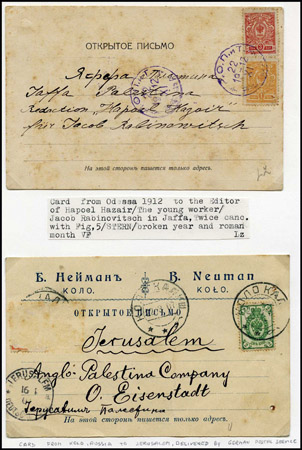 ОТКРЫТОЕ ПИСЬМО
Яффа Палестина
Jaffa Palestina
Redaction "Hapoel Hazair"
für Jacob Rabinowitsch
На этой сторонѣ пишется только адресъ.
Card from Odessa 1912 to the Editor
of Hapoel Hazair/The young worker/
Jacob Rabinovitsch in Jaffa,Twice canc.
with Fig,5/STERN/broken year and roman
month VF
lz
Б. Нейманъ B. Neuman
КОЛО. KOŁO.
ОТКРЫТОЕ ПИСЬМО
Jerusalem
Anglo Palestina Company
O. Eisenstadt
Іерусалимъ Палестина
На этой сторонѣ пишется только адресъ
JERUSALEM
CARD FROM KOLO, RUSSIA TO JERUSALEM, DELIVERED BY GERMAN POSTAL SERVICE